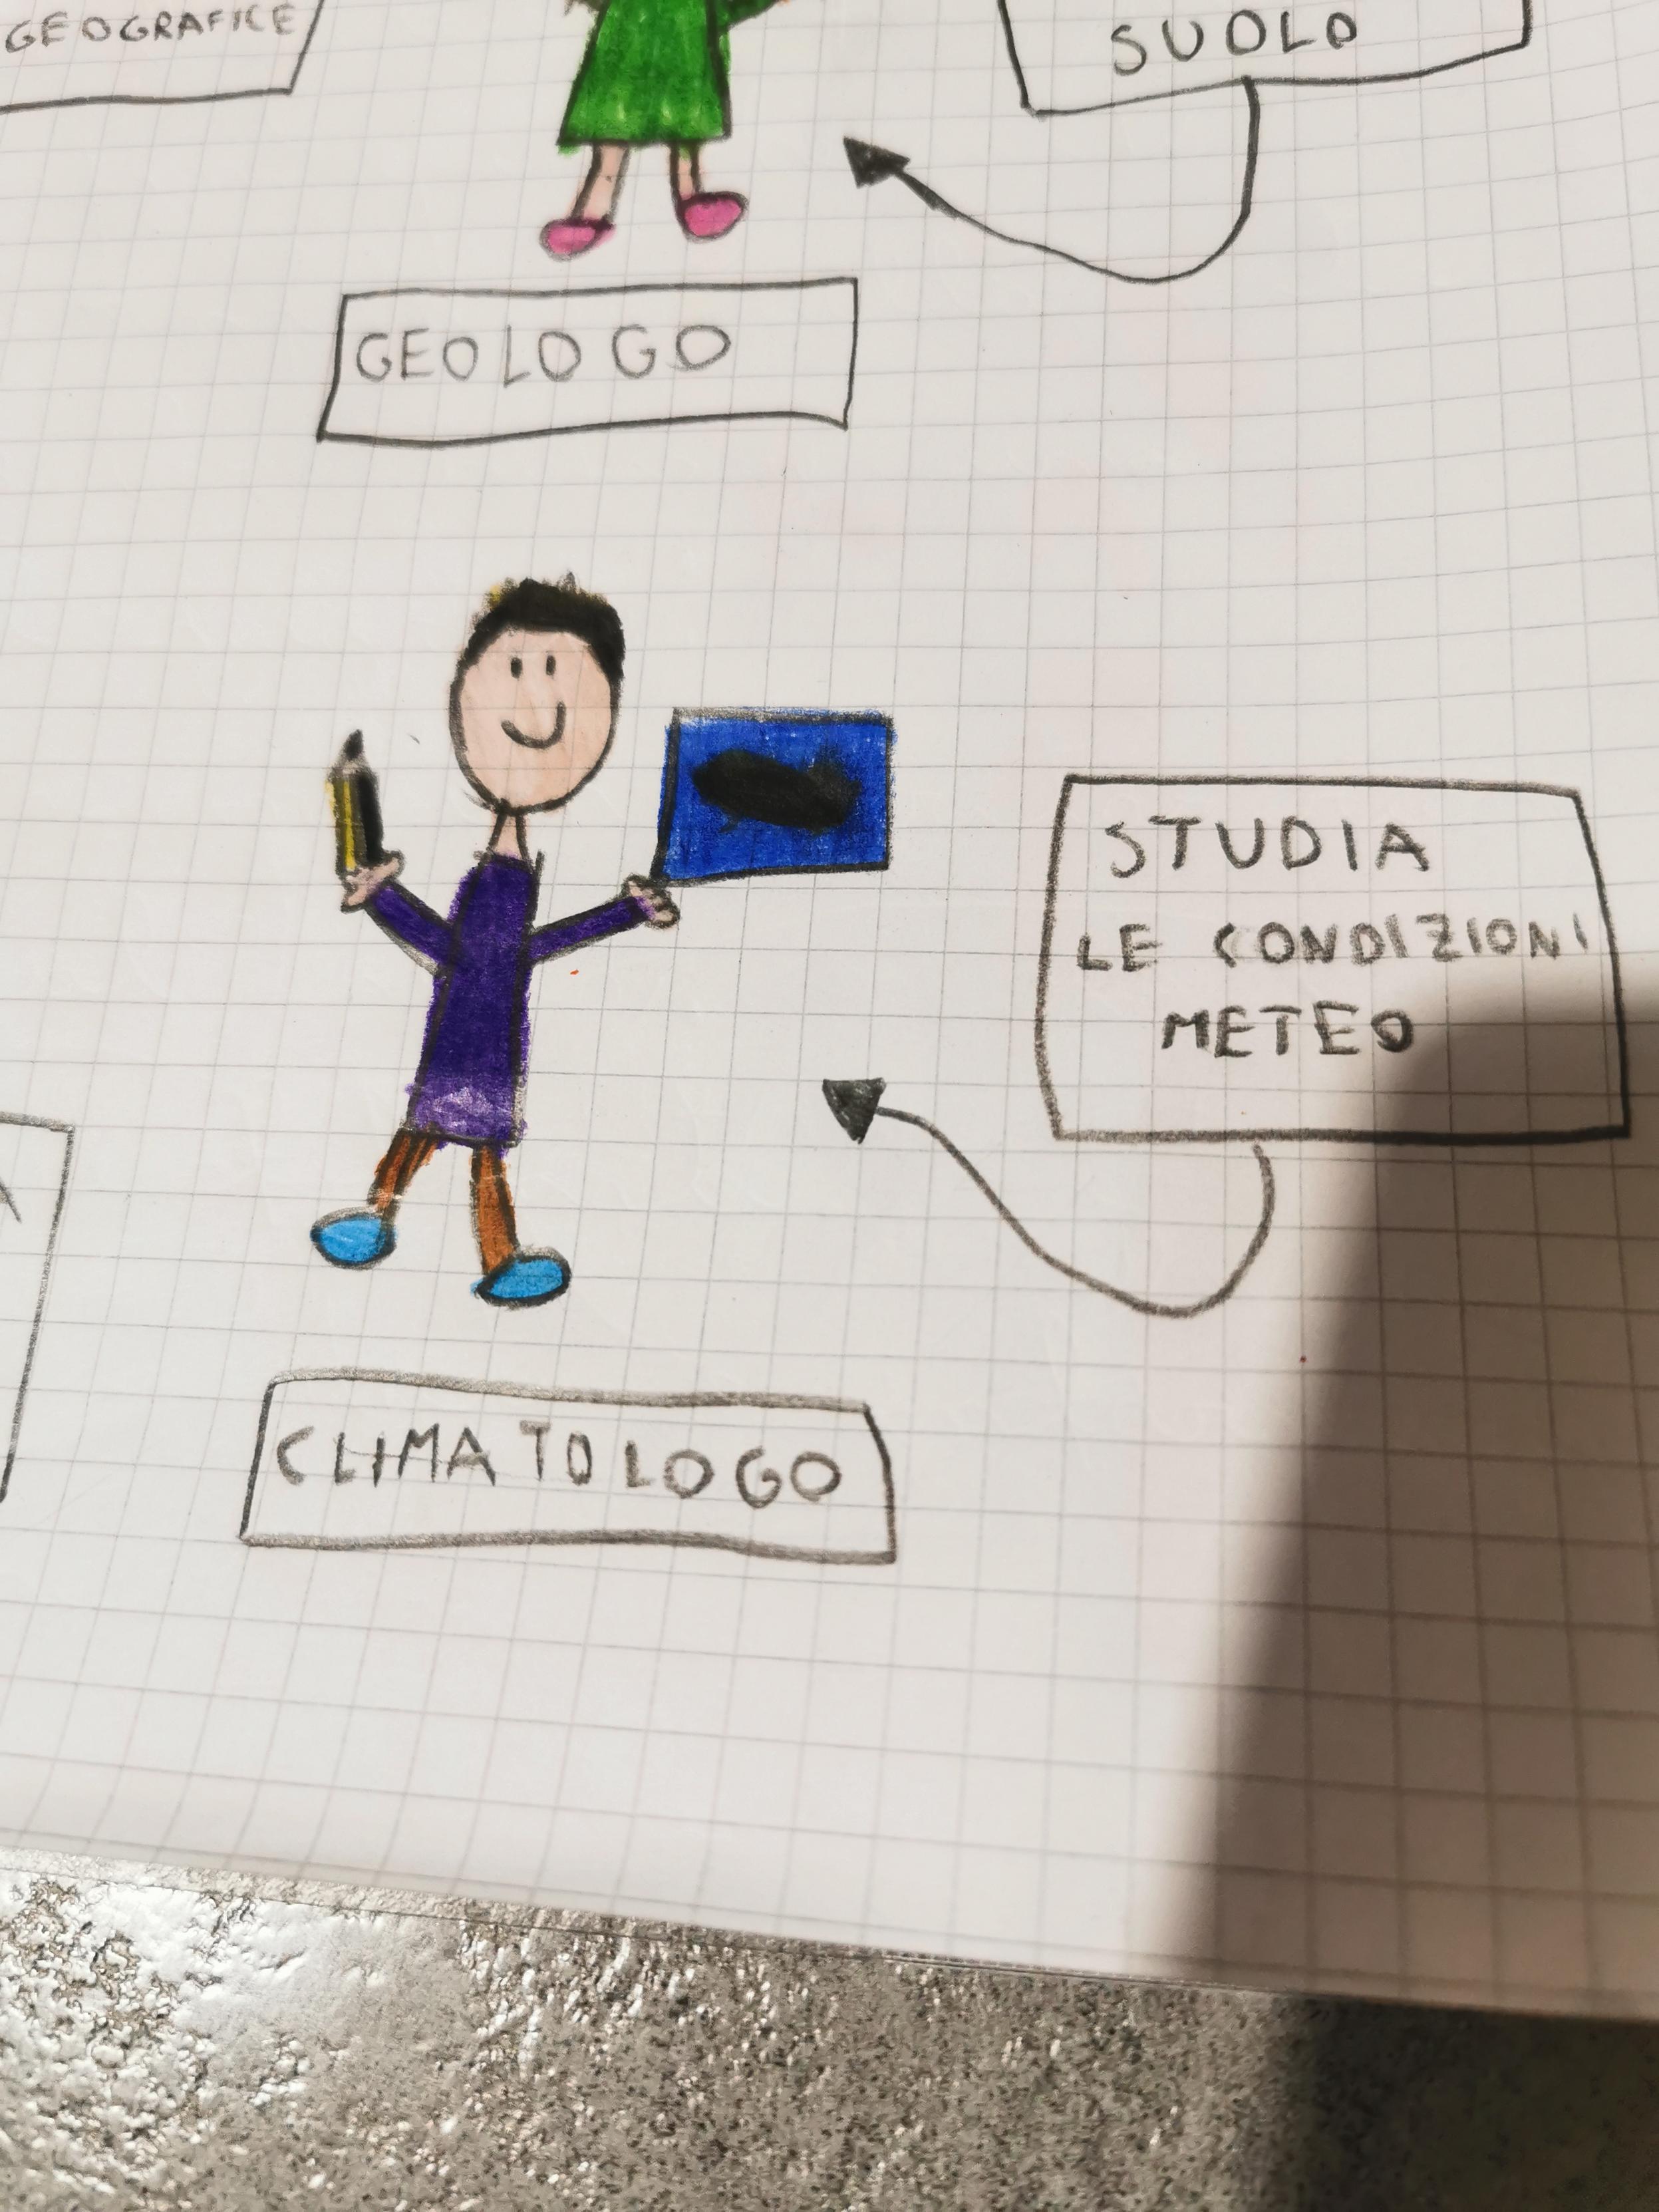 GEOGRAFICE
SUOLO
GEOLOGO
STUDIA
LE CONDIZIONI
METEO
CLIMATOLOGO